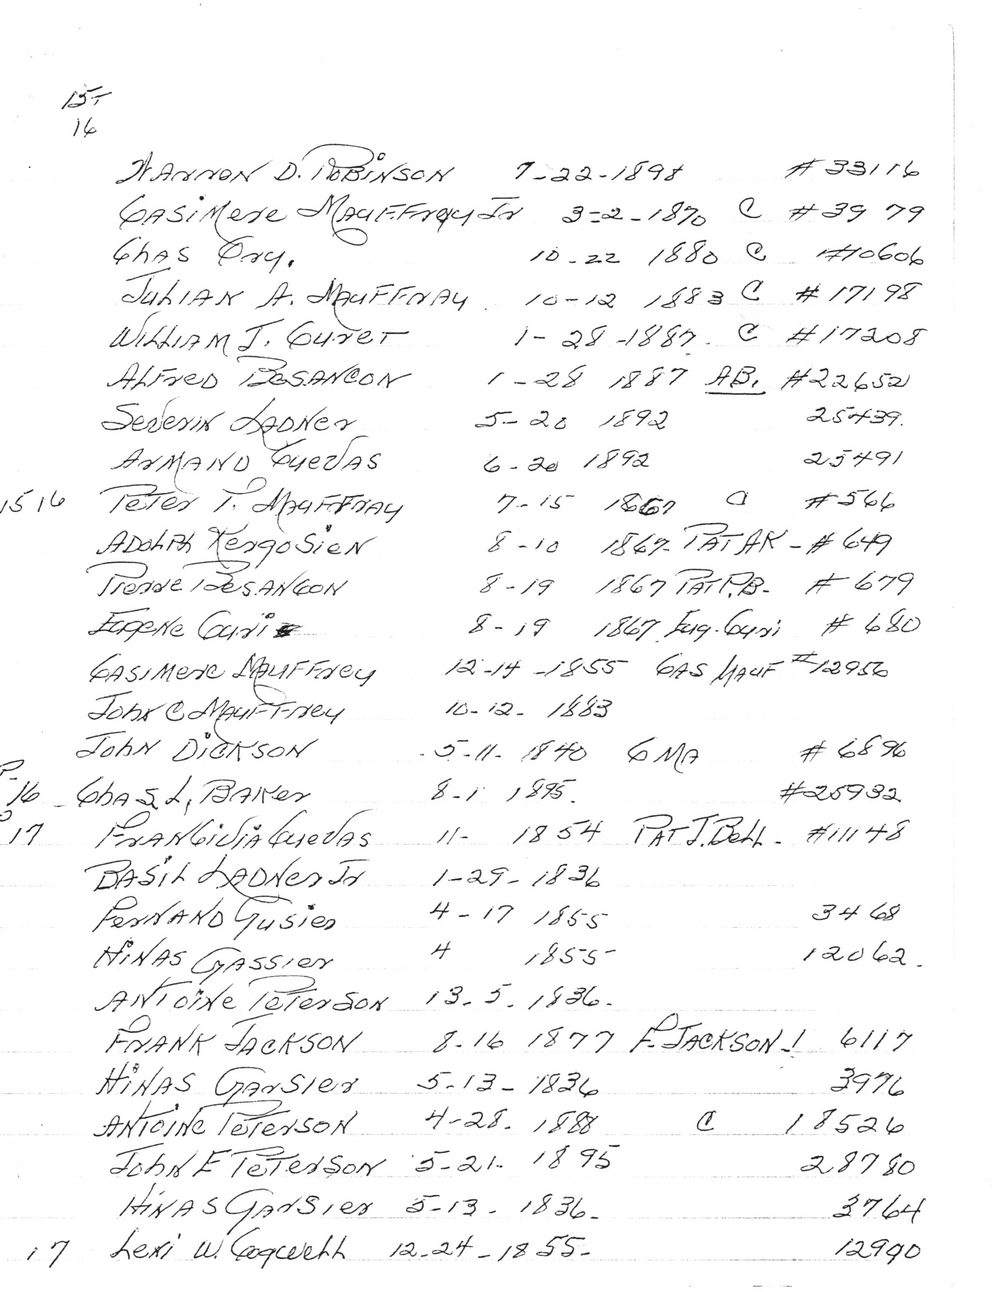 15T
16
Harron D. Robinson 7-22-1898 #33116
Casimere Mauffray Jr 3-2-1870 C #3979
Chas Ory. 10-22 1880 C #10606
Julian A. Mauffray. 10-12 1883 C #17198
William J. Curet 1-28-1887. C #17208
Alfred Besancon 1-28 1887 AB. #22652
Severin Ladner 5-20 1892 25439.
Armand Cuevas 6-20 1892 25491
1516 Peter P. Mauffray 7-15 1867 C #566
Adolph Kergosien 8-10 1867- Pat AK - #649
Pierre Besancon 8-19 1867 Pat P.B- #679
Eugene Curi 8-19 1867 Eug. Curi #680
Casimere Mauffrey 12-14-1855 Cas Mauf #12956
John C Mauffrey 10-12- 1883
John Dickson 5-11- 1840 C MA #6896
P-
16 Chas L, Baker 8-1 1895. #25932
17 Francivia Cuevas 11- 1854 Pat J. Bell - #11148
Basil Ladner Jr 1-29-1836
Fernand Gusier 4-17 1855 3468
Hinas Gassier 4 1855 12062.
Antoine Peterson 13.5.1836.
Frank Jackson 8-16 1877 F. Jackson-! 6117
Hinas Garsier 5-13-1836 3976
Antoine Peterson 4-28. 1888 C 18526
John E Peterson 5-21- 1895 28780
Hinas Garsier 5-13- 1836- 3764
17 Levi W. Cogwell 12-24-1855- 12990